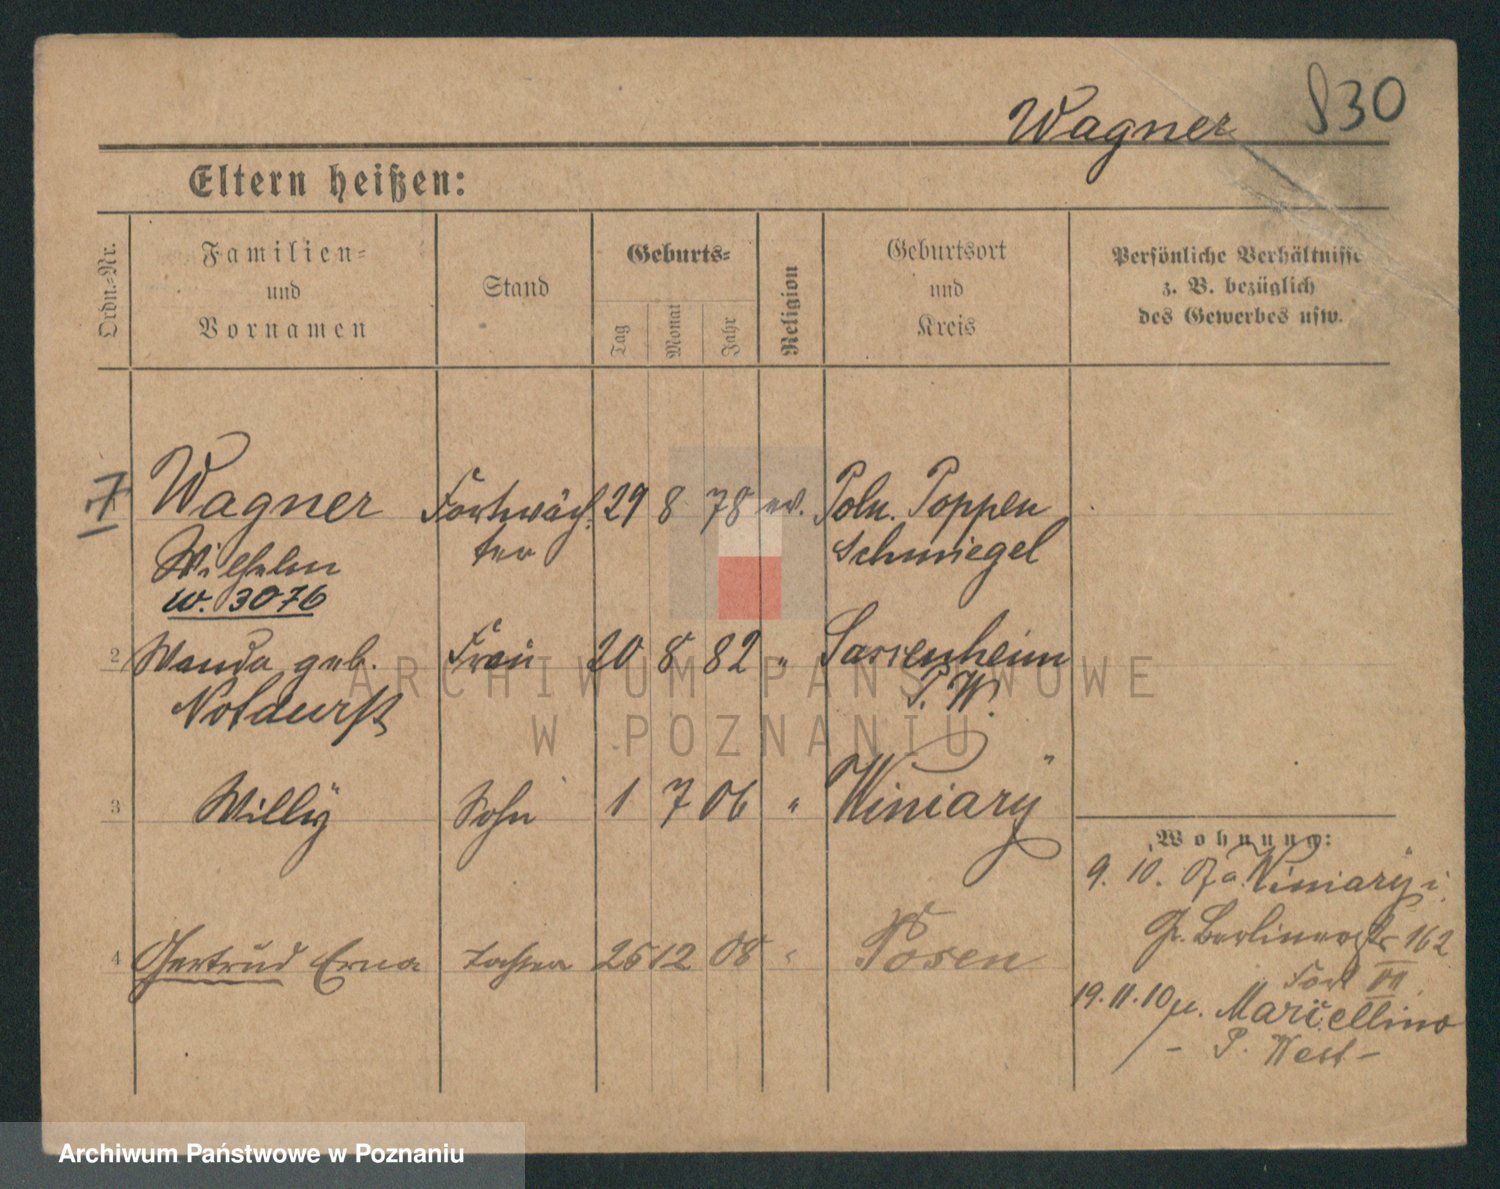 Wagner 830
Eltern heißen:
Ordn.-Nr.
Familien-
und
Vornamen
Stand
Geburts-
Tag
Monat
Jahr
Religion
Geburtsort
und
Kreis
Persönliche Verhältnisse
z. B. bezüglich
des Gewerbes usw.
Wagner Fortwäch- 29 8 78 ev. Poln. Poppen
Wilhelm ter Schmiegel
w. 3076
2 Wanda geb. Frau 20 8 82 " Sassenheim
P. W.
3 Willÿ Sohn 1 7 06 " Winiarÿ
4 Gertrud Erna Tochter 25 12 08 " Posen
Wohnung:
9. 10. 07 a. Winiarÿ i.
Gr. Berlinerstr 162
Fort VII.
19. 11. 10 n. Marcellino
- P. West -
ARCHIWUM PAŃSTWOWE
W POZNANIU
Archiwum Państwowe w Poznaniu